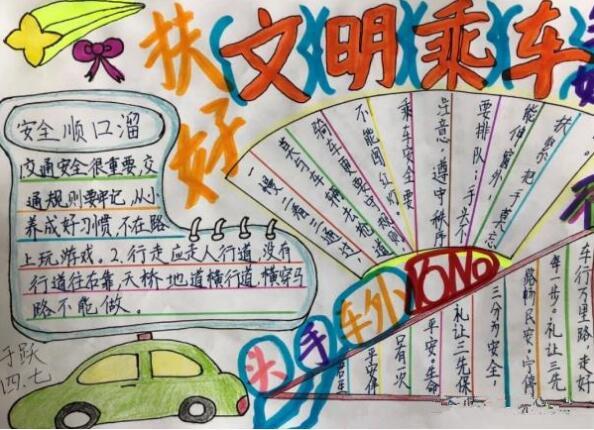 扶好
文明乘车
安全顺口溜
交通安全很重要,交
通规则要牢记,从小
养成好习惯,不在路
上玩游戏。2.行走应走人行道,没有
行道往右靠,天桥地道横行道,横穿马
路不能做。
扶紧把手莫忘
能伸窗外,
要排队;手头不
注意:遵守秩序
乘车安全要
不能闯红灯。
骑车更要守规则
莫与车辆去抢道
一慢二看三通过,
NO
头手车外
车行万里路,走好
每一步。礼让三先
路畅民安。宁停
三分为安全,
礼让三先保
平安。生命
只有一次
平安伴
于跃
四.七